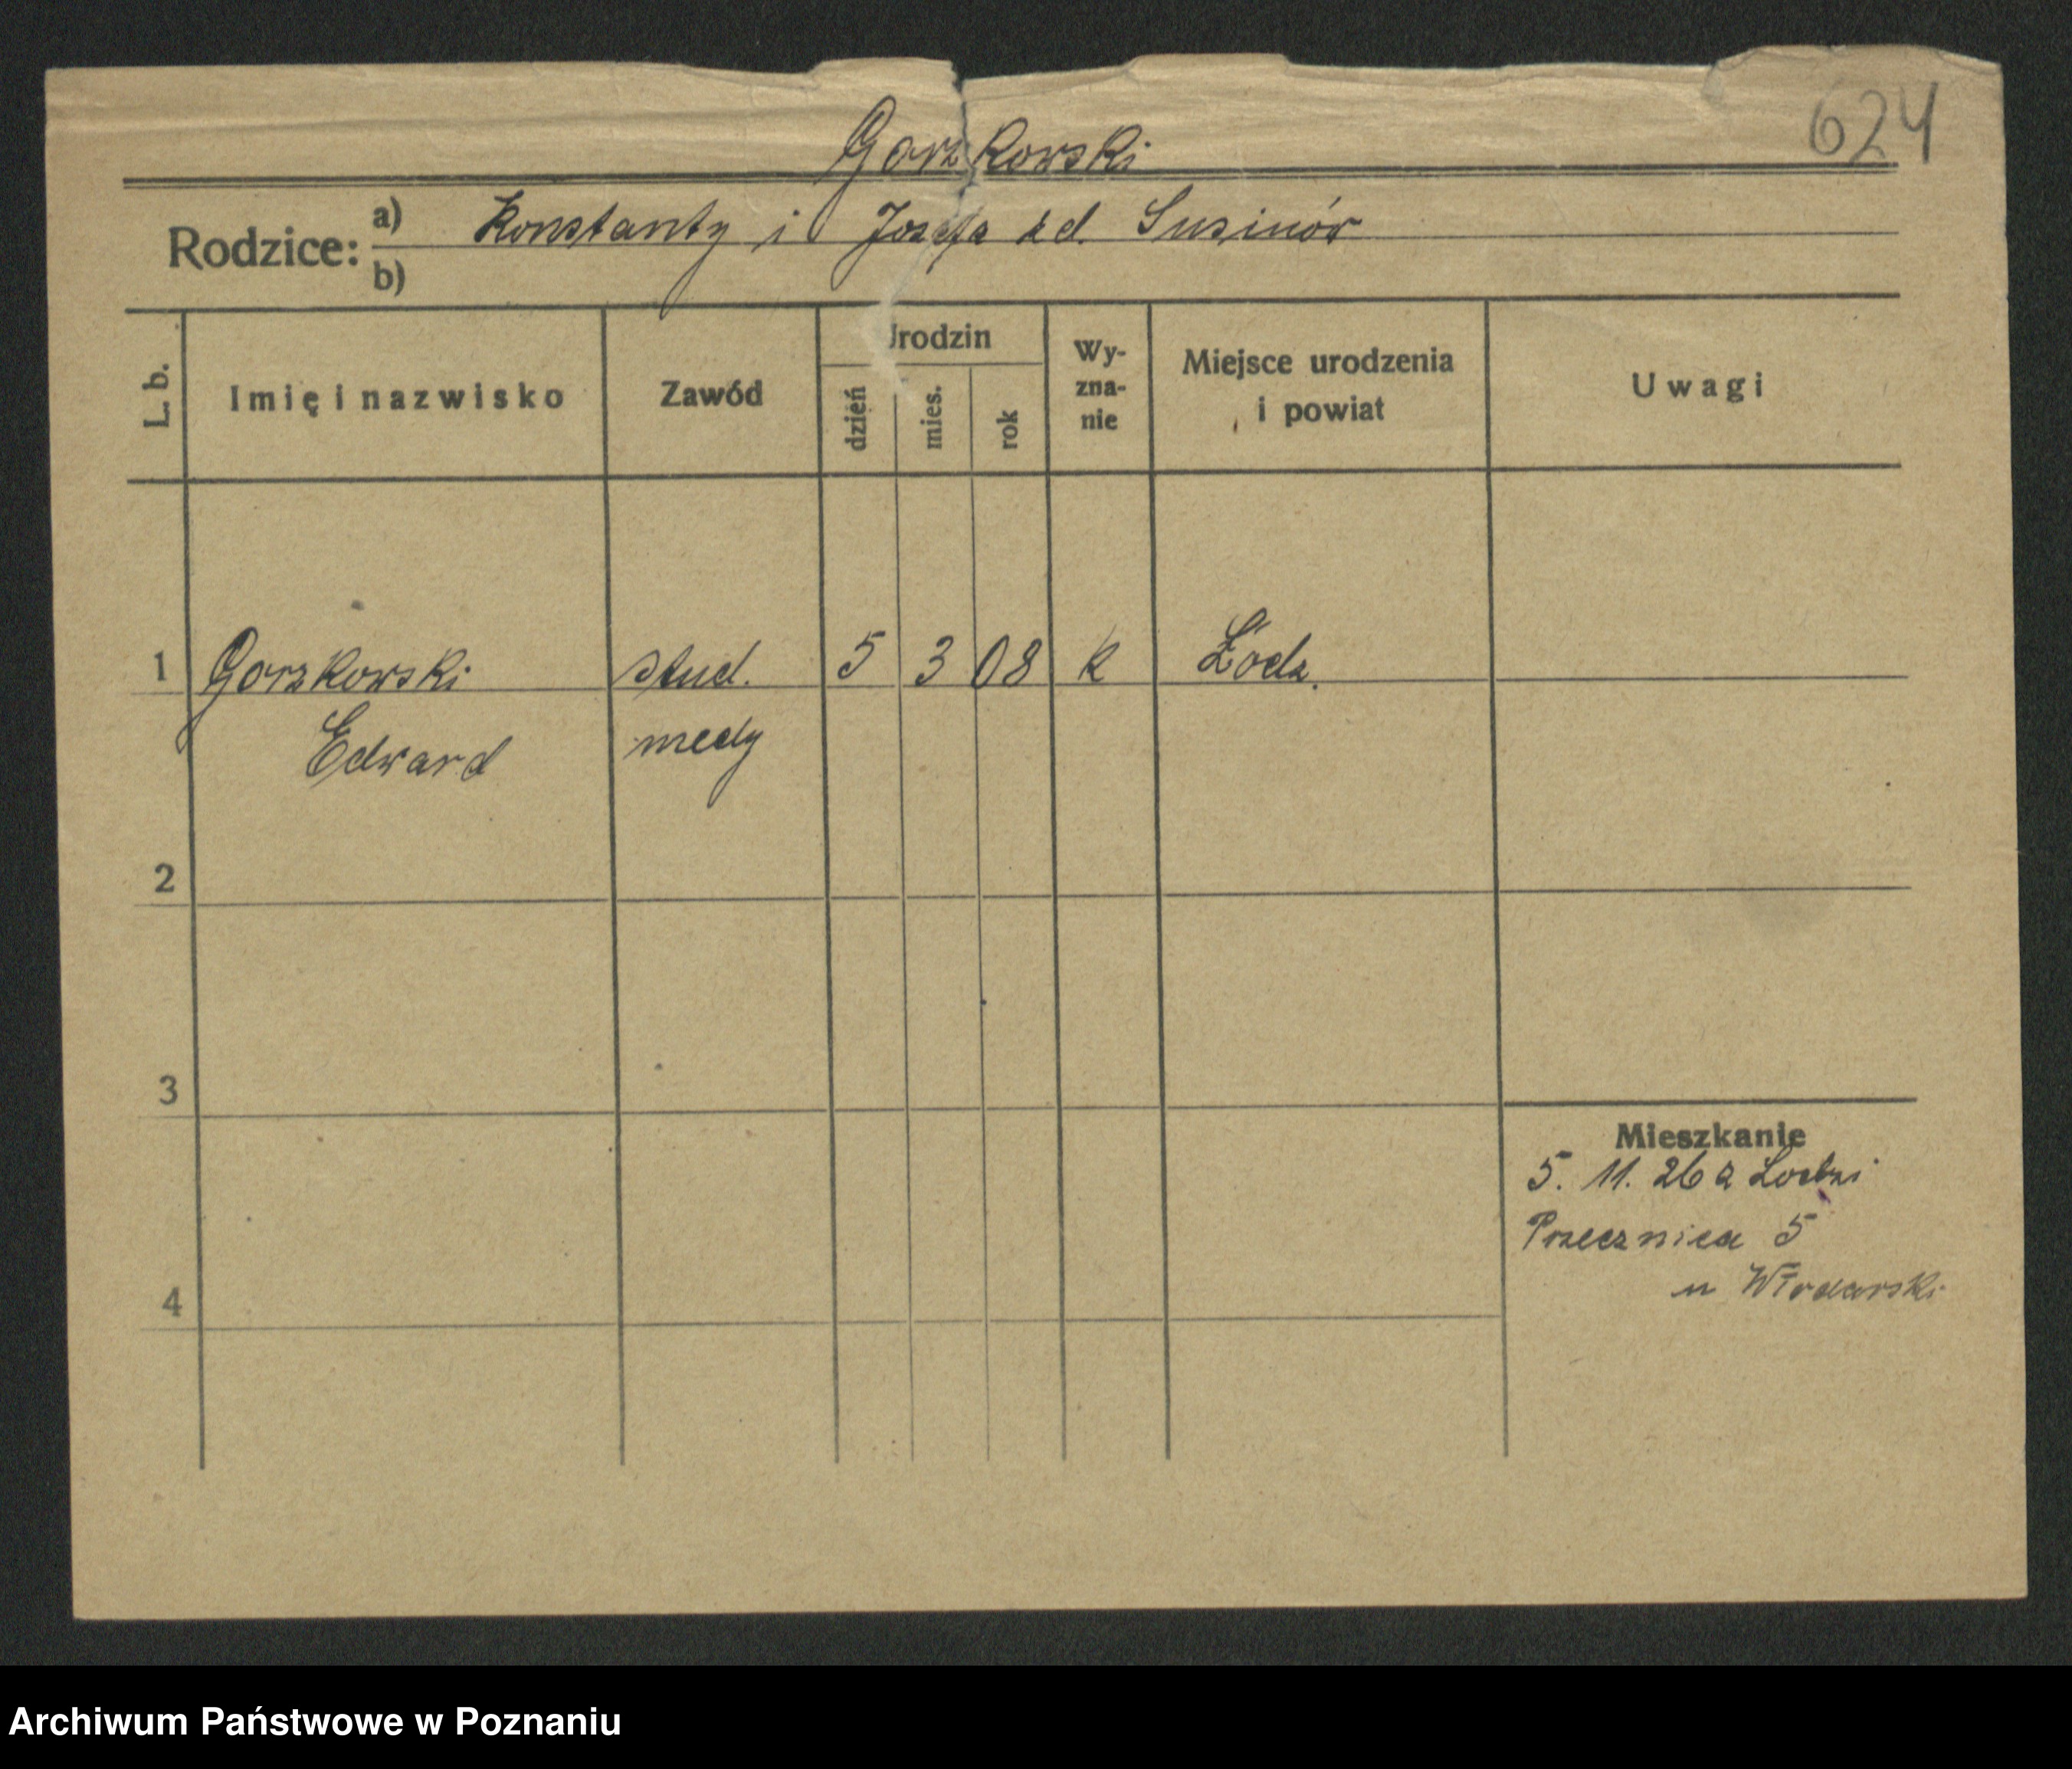 624
Gorzkowski
Rodzice: a) Konstanty i Józefa z d. Susinów
b)
L. b. Imię i nazwisko Zawód Urodzin dzień mies. rok Wy-zna-nie Miejsce urodzenia i powiat Uwagi
1 Gorzkowski stud. 5 3 08 k Łódz.
Edward medy
2
3
Mieszkanie
5. 11. 26 z Lodzi
Przecznica 5
4
u Włodarski
Archiwum Państwowe w Poznaniu